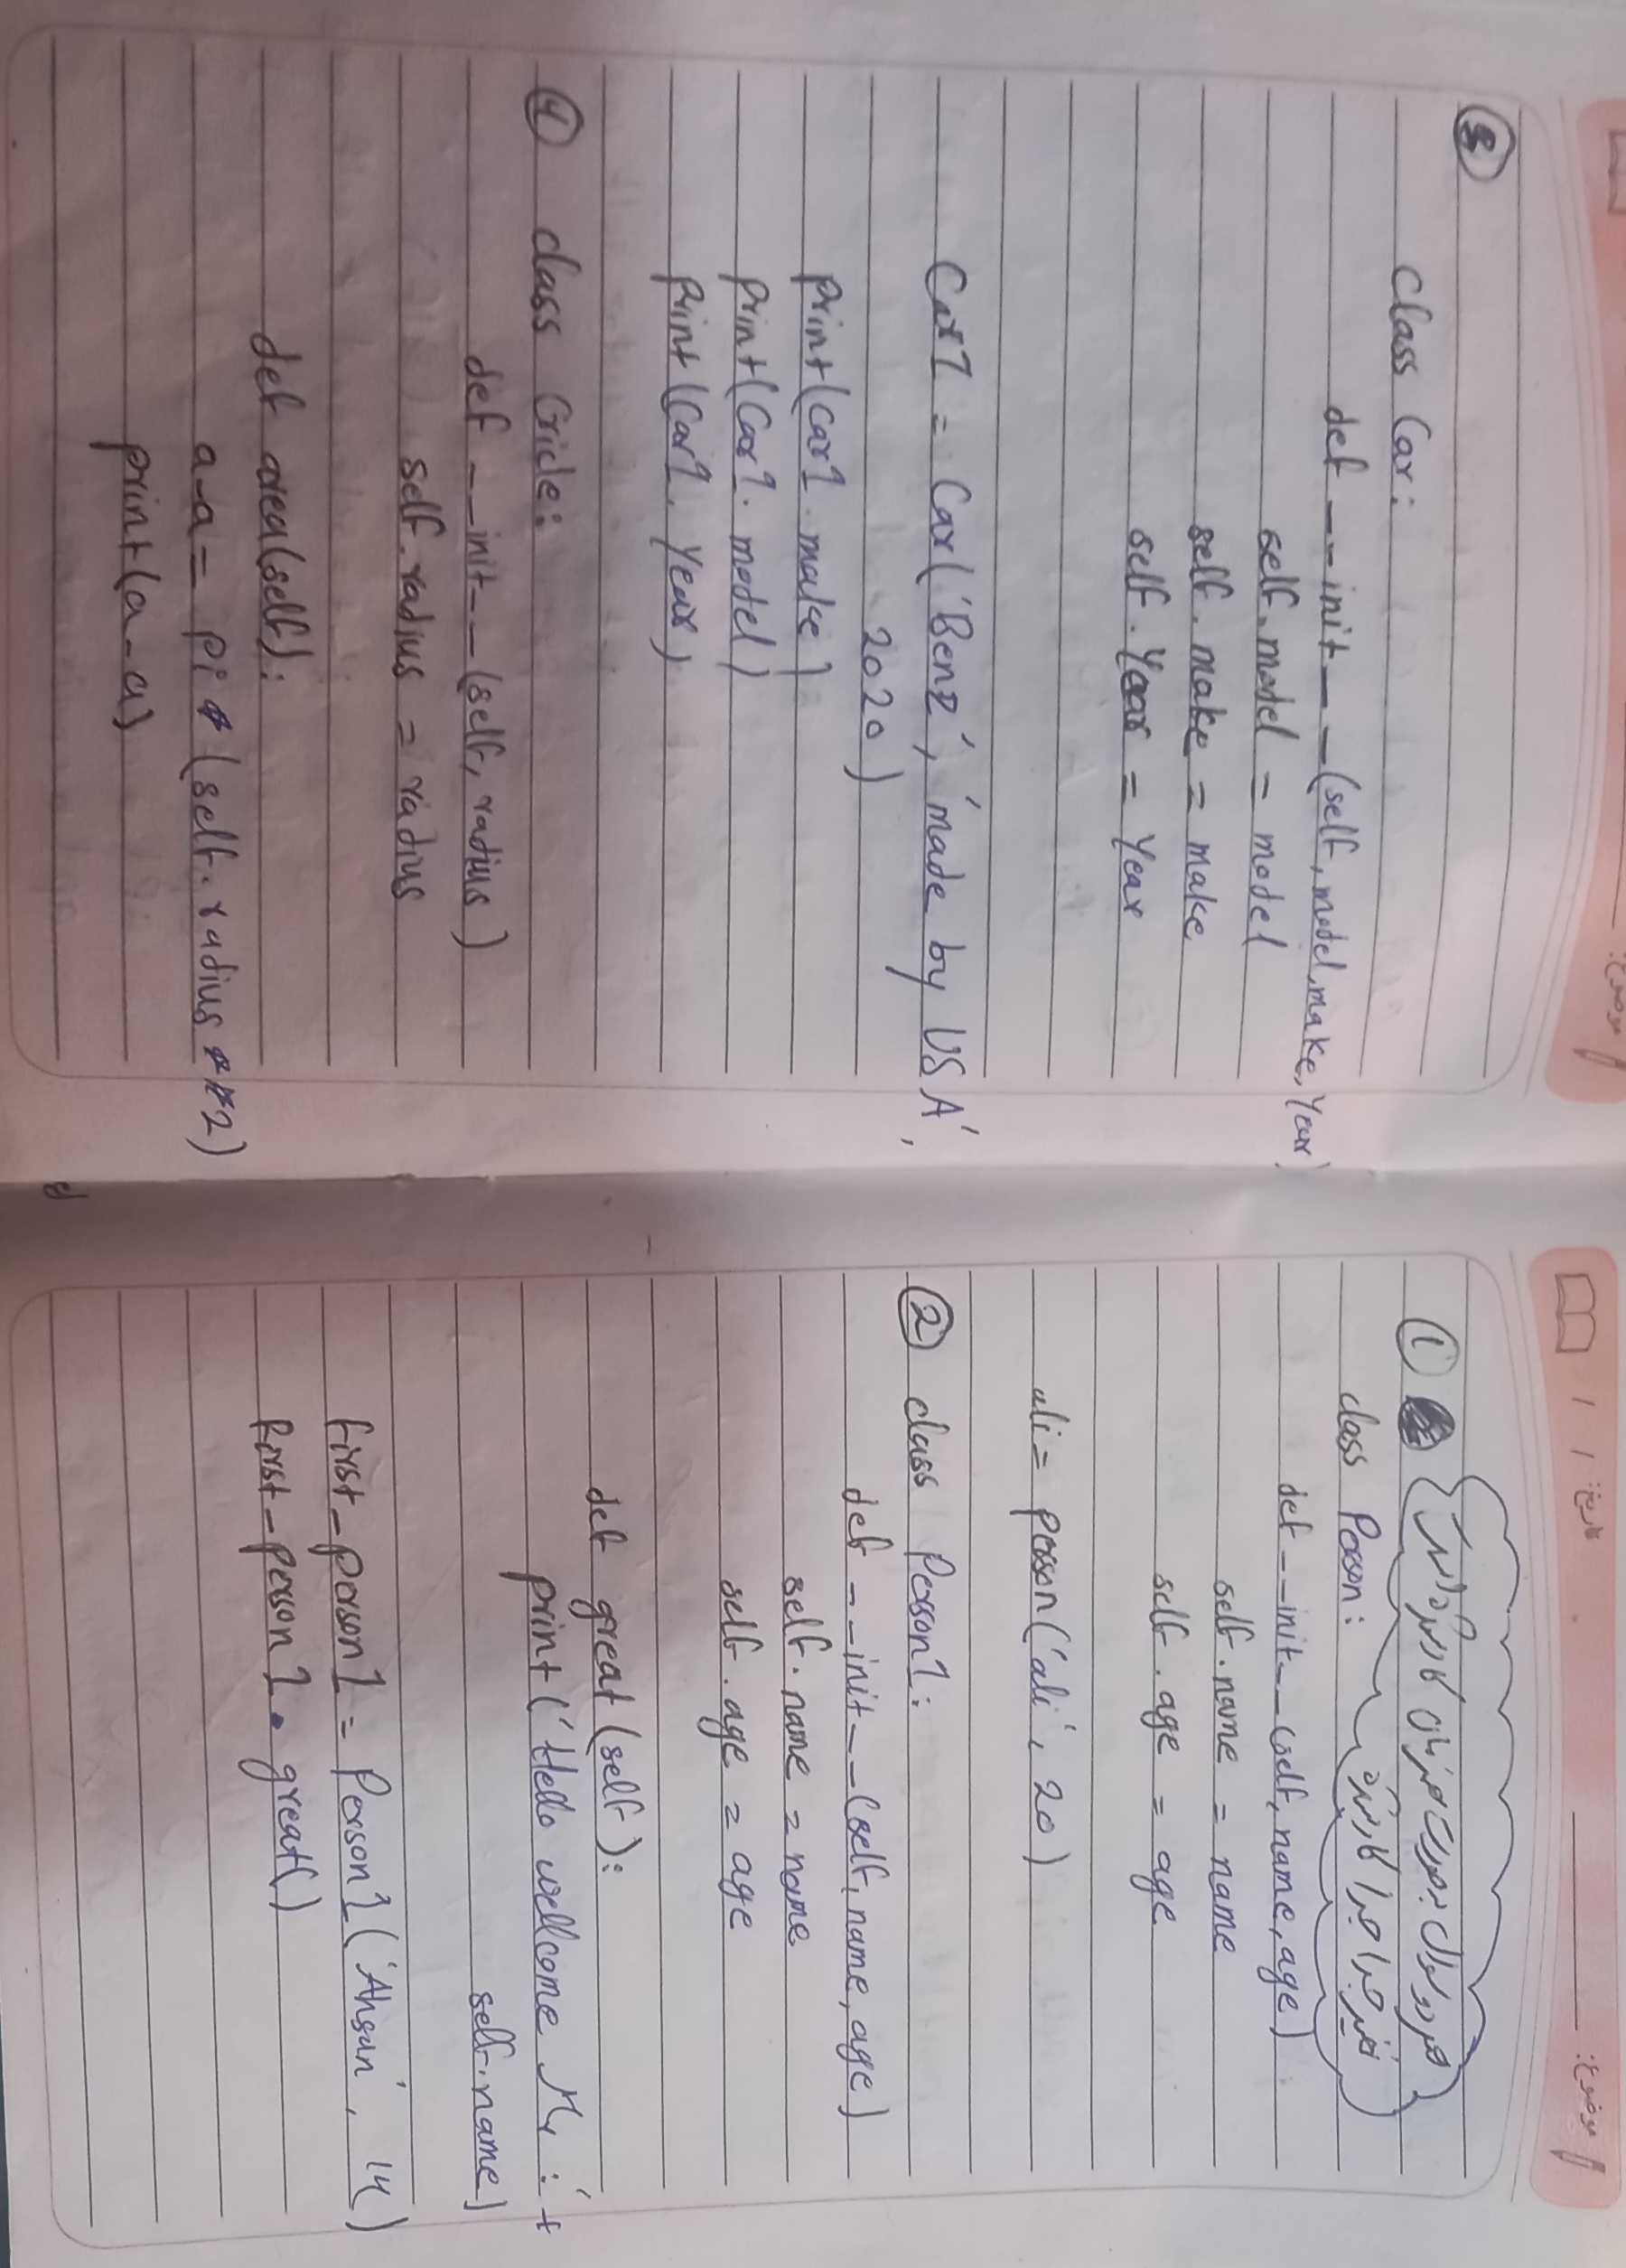 موضوع:
③
class Car:
def __init__(self, model, make, Year)
self.model = model
self.make = make
self.Year = Year
Car1 = Car('Benz', 'made by USA',
2020)
print(Car1.make)
print(Car1.model)
print(Car1.Year)
④ class Circle:
def __init__(self, radius)
self.radius = radius
def area(self):
a-a = pi * (self.radius **2)
print(a-a)
تاریخ: / / موضوع:
① (هر دو سوال بصورت همزمان کار میگیرد
نفر جدا جدا کار میگیره)
class Person:
def __init__(self, name, age)
self.name = name
self.age = age
ali = person('ali', 20)
② class Person1:
def __init__(self, name, age)
self.name = name
self.age = age
def great(self):
print('Hello wellcome Mr :' +
self.name)
first-person1 = Person1('Ahsan', 14)
first-person1.great()